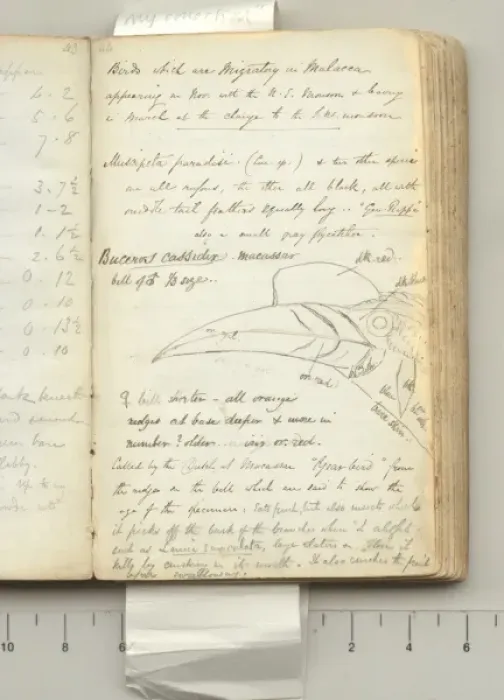 my sketch of
23
44
4 - 2
5 - 6
7 - 8
3 . 7½
1 - 2
1 . 1½
2 . 6½
0 . 12
0 . 10
0 . 13½
0 . 10
Birds which are Migratory in Malacca
appearing in Nov. with the N.E. Monsoon & leaving
in March at the change to the S.W. monsoon
Muscipeta paradisi. (Lin. sp.) & two other species
one all rufous, the other all black, all with
middle tail feathers equally long ..
also a small gray flycatcher.
Buceros cassidix. Macassar
bill of ♂ ½ size..
dk. red.
or. red.
blue
♀ bill shorter – all orange
ridges at base deeper & more in
number? older iris or. red.
Called by the Dutch at Macassar "Year bird" from
the ridges on the bill which are said to show the
age of the specimens; Eats fruit, but also insects which
it picks off the bark of the branches when it alights
such as large
it
kills by crushing in its mouth. It also crushes the fruit
before swallowing.
10 8 6 2 4 6